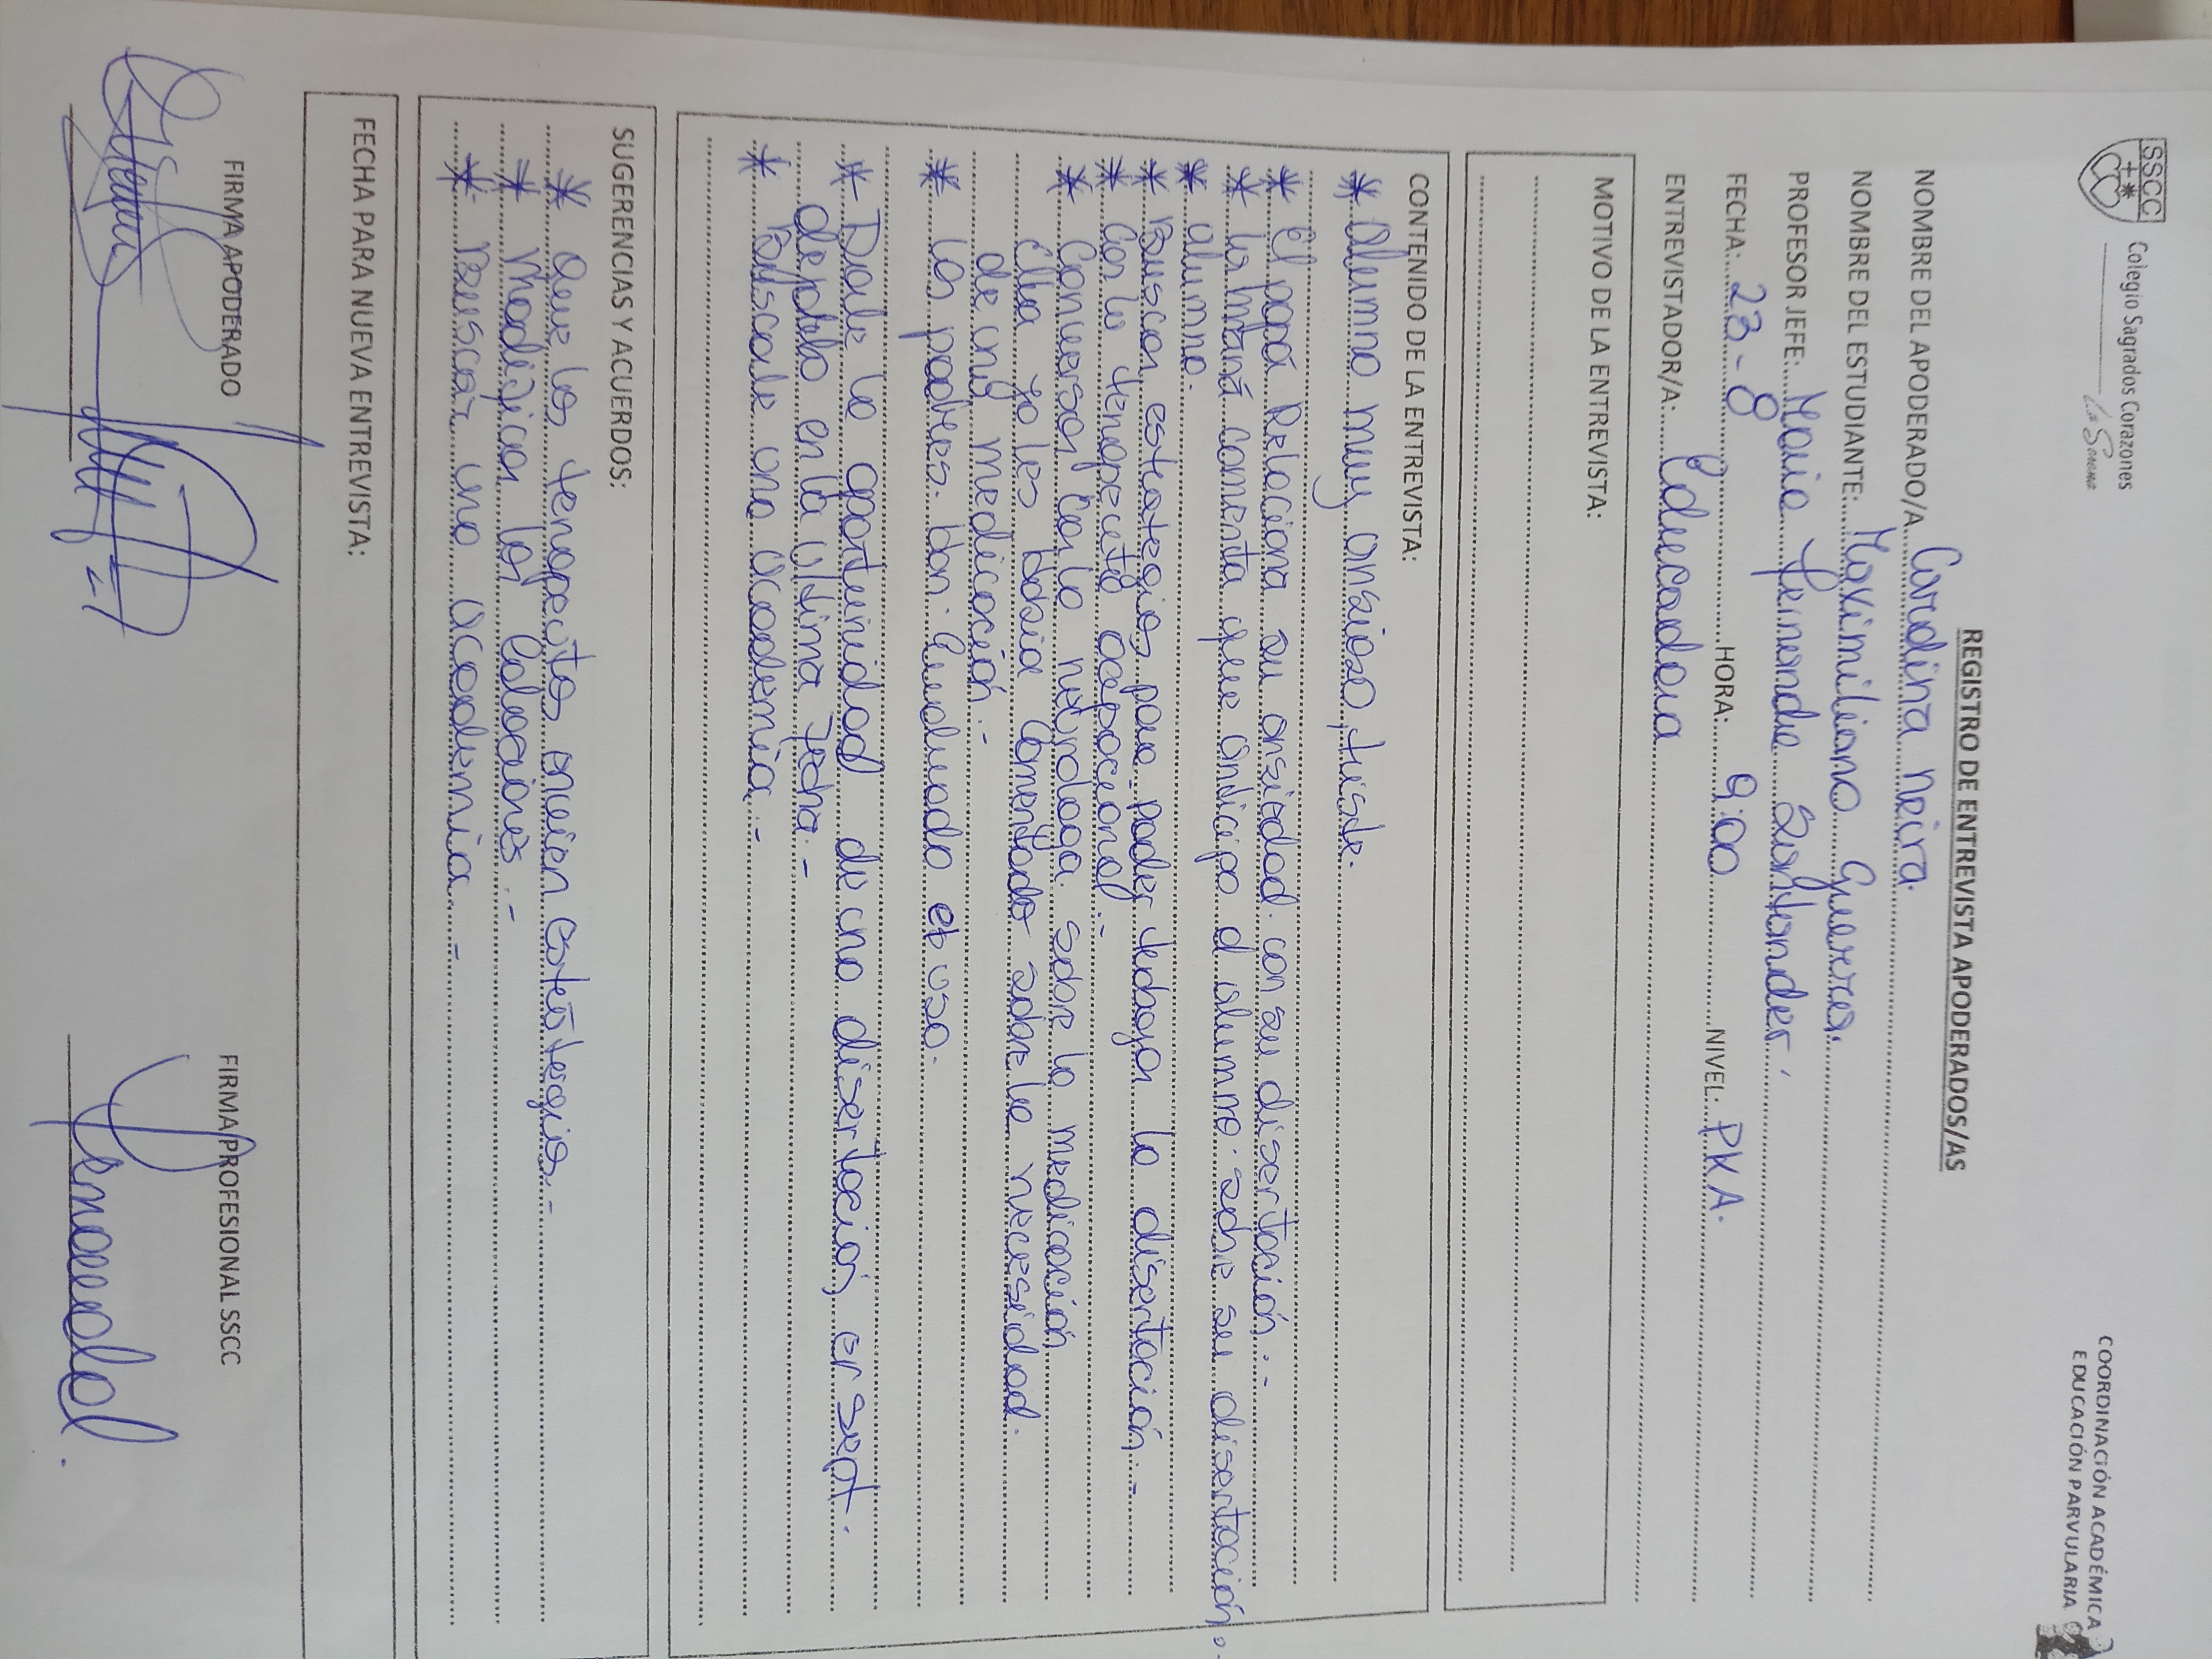 SSCC
Colegio Sagrados Corazones
La Serena
COORDINACIÓN ACADÉMICA
EDUCACIÓN PARVULARIA
REGISTRO DE ENTREVISTA APODERADOS/AS
NOMBRE DEL APODERADO/A: Carolina neira.
NOMBRE DEL ESTUDIANTE: Maximiliano Guerrero.
PROFESOR JEFE: María Fernanda Santander.
FECHA: 23-8 HORA: 9:00 NIVEL: PKA.
ENTREVISTADOR/A: Educadora
MOTIVO DE LA ENTREVISTA:
CONTENIDO DE LA ENTREVISTA:
* Alumno muy ansioso, triste.
* El papá Relaciona su ansiedad con su disertación.-
* la mamá comenta que anticipo al alumno sobre su disertación.
* alumno.
* Buscan estrategias para poder trabajar la disertación.-
* Con la terapeuta ocupacional.-
* Conversar con la neuróloga sobre la medicación
Ella ya les había comentado sobre la necesidad
de una medicación.-
* Los padres han evaluado el uso.
* Darle la oportunidad de una disertación, en sept.
dejarlo en la última fecha.-
* Búscale una academia.-
SUGERENCIAS Y ACUERDOS:
* Que los terapeutas envien estrategias.-
* Modifican las colaciones.-
* Buscar una academia.-
FECHA PARA NUEVA ENTREVISTA:
FIRMA APODERADO FIRMA PROFESIONAL SSCC